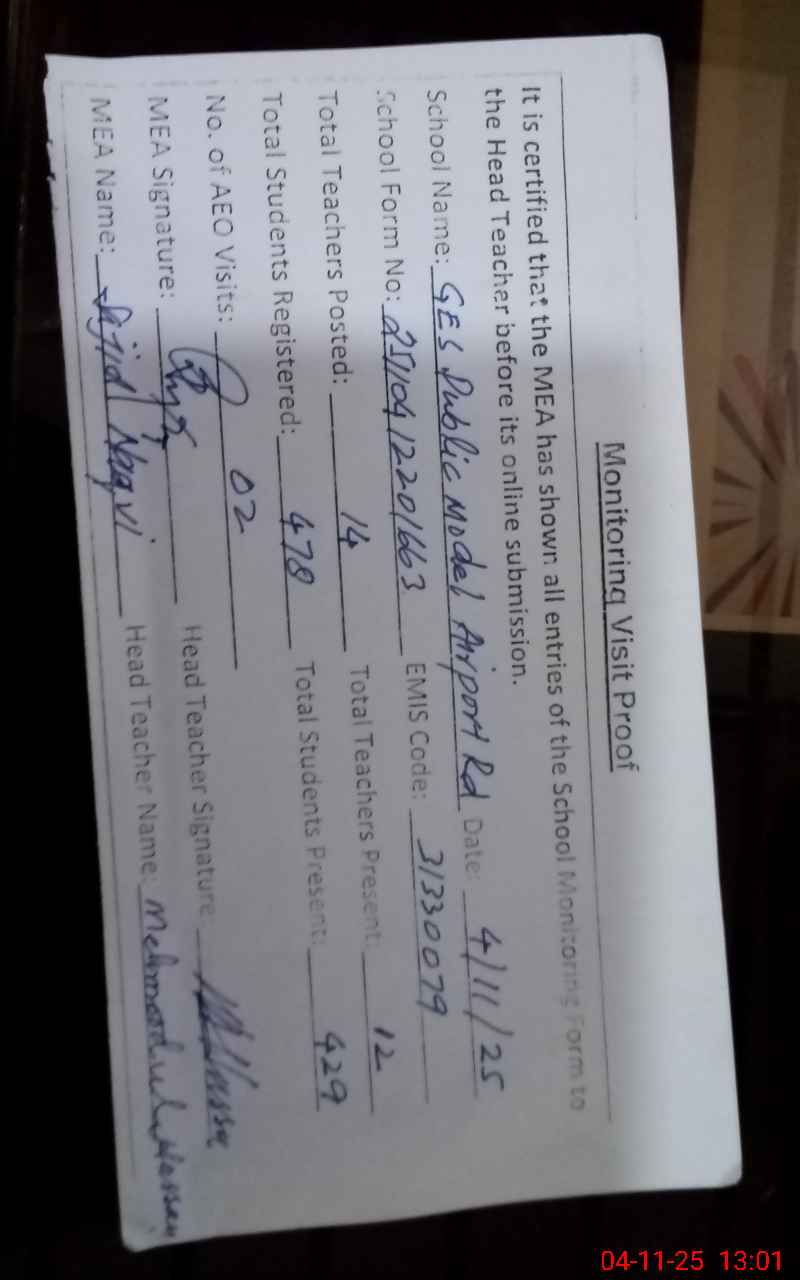 Monitoring Visit Proof
It is certified that the MEA has shown all entries of the School Monitoring Form to
the Head Teacher before its online submission.
School Name: GES Public Model Airport Rd Date: 4/11/25
School Form No: 251104122201663 EMIS Code: 31330079
Total Teachers Posted: 14 Total Teachers Present: 12
Total Students Registered: 478 Total Students Present: 429
No. of AEO Visits: 02
MEA Signature: Head Teacher Signature:
MEA Name: Sajjad Naqvi Head Teacher Name: Mehmood ul Hassan
04-11-25 13:01